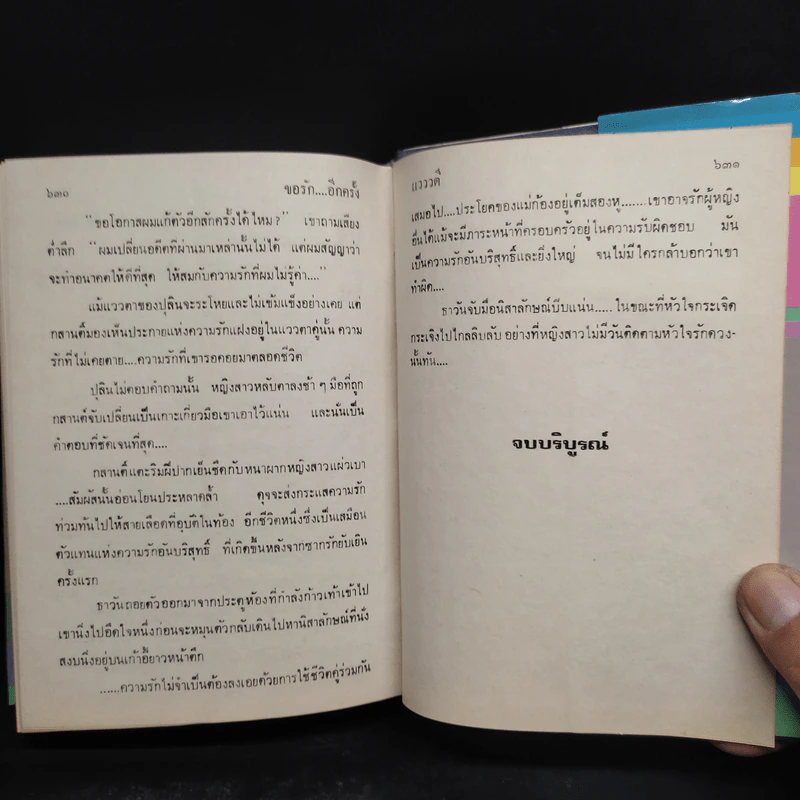 ๖๓๐ ขอรัก....อีกครั้ง
"ขอโอกาสผมแก้ตัวอีกสักครั้งได้ไหม?" เขาถามเสียง
ต่ำลึก "ผมเปลี่ยนอดีตที่ผ่านมาเหล่านั้นไม่ได้ แต่ผมสัญญาว่า
จะทำอนาคตให้ดีที่สุด ให้สมกับความรักที่ผมไม่รู้ค่า...."
แม้แววตาของปุลินจะระโหยและไม่เข้มแข็งอย่างเคย แต่
กสานติ์มองเห็นประกายแห่งความรักแฝงอยู่ในแววตาคู่นั้น ความ
รักที่ไม่เคยตาย....ความรักที่เขารอคอยมาตลอดชีวิต
ปุลินไม่ตอบคำถามนั้น หญิงสาวหลับตาลงช้า ๆ มือที่ถูก
กสานต์จับเปลี่ยนเป็นเกาะเกี่ยวมือเขาเอาไว้แน่น และนั่นเป็น
คำตอบที่ชัดเจนที่สุด....
กสานติ์แตะริมฝีปากเย็นชืดกับหน้าผากหญิงสาวแผ่วเบา
....สัมผัสนั้นอ่อนโยนประหลาดล้ำ ดุจจะส่งกระแสความรัก
ท่วมท้นไปให้สายเลือดที่อุบัติในท้อง อีกชีวิตหนึ่งซึ่งเป็นเสมือน
ตัวแทนแห่งความรักอันบริสุทธิ์ ที่เกิดขึ้นหลังจากซากรักยับเยิน
ครั้งแรก
ธาวันถอยตัวออกมาจากประตูห้องที่กำลังก้าวเท้าเข้าไป
เขานิ่งไปอึดใจหนึ่งก่อนจะหมุนตัวกลับเดินไปหานิสาลักษณ์ที่นั่ง
สงบนิ่งอยู่บนเก้าอี้ยาวหน้าตึก
......ความรักไม่จำเป็นต้องลงเอยด้วยการใช้ชีวิตคู่ร่วมกัน
แวววตี ๖๓๑
เสมอไป....ประโยคของแม่ก้องอยู่เต็มสองหู.......เขาอาจรักผู้หญิง
อื่นได้แม้จะมีภาระหน้าที่ครอบครัวอยู่ในความรับผิดชอบ มัน
เป็นความรักอันบริสุทธิ์และยิ่งใหญ่ จนไม่มีใครกล้าบอกว่าเขา
ทำผิด....
ธาวันจับมือนิสาลักษณ์บีบแน่น.....ในขณะที่หัวใจกระเจิด
กระเจิงไปไกลลิบลับ อย่างที่หญิงสาวไม่มีวันติดตามหัวใจรักดวง-
นั้นทัน....
จบบริบูรณ์